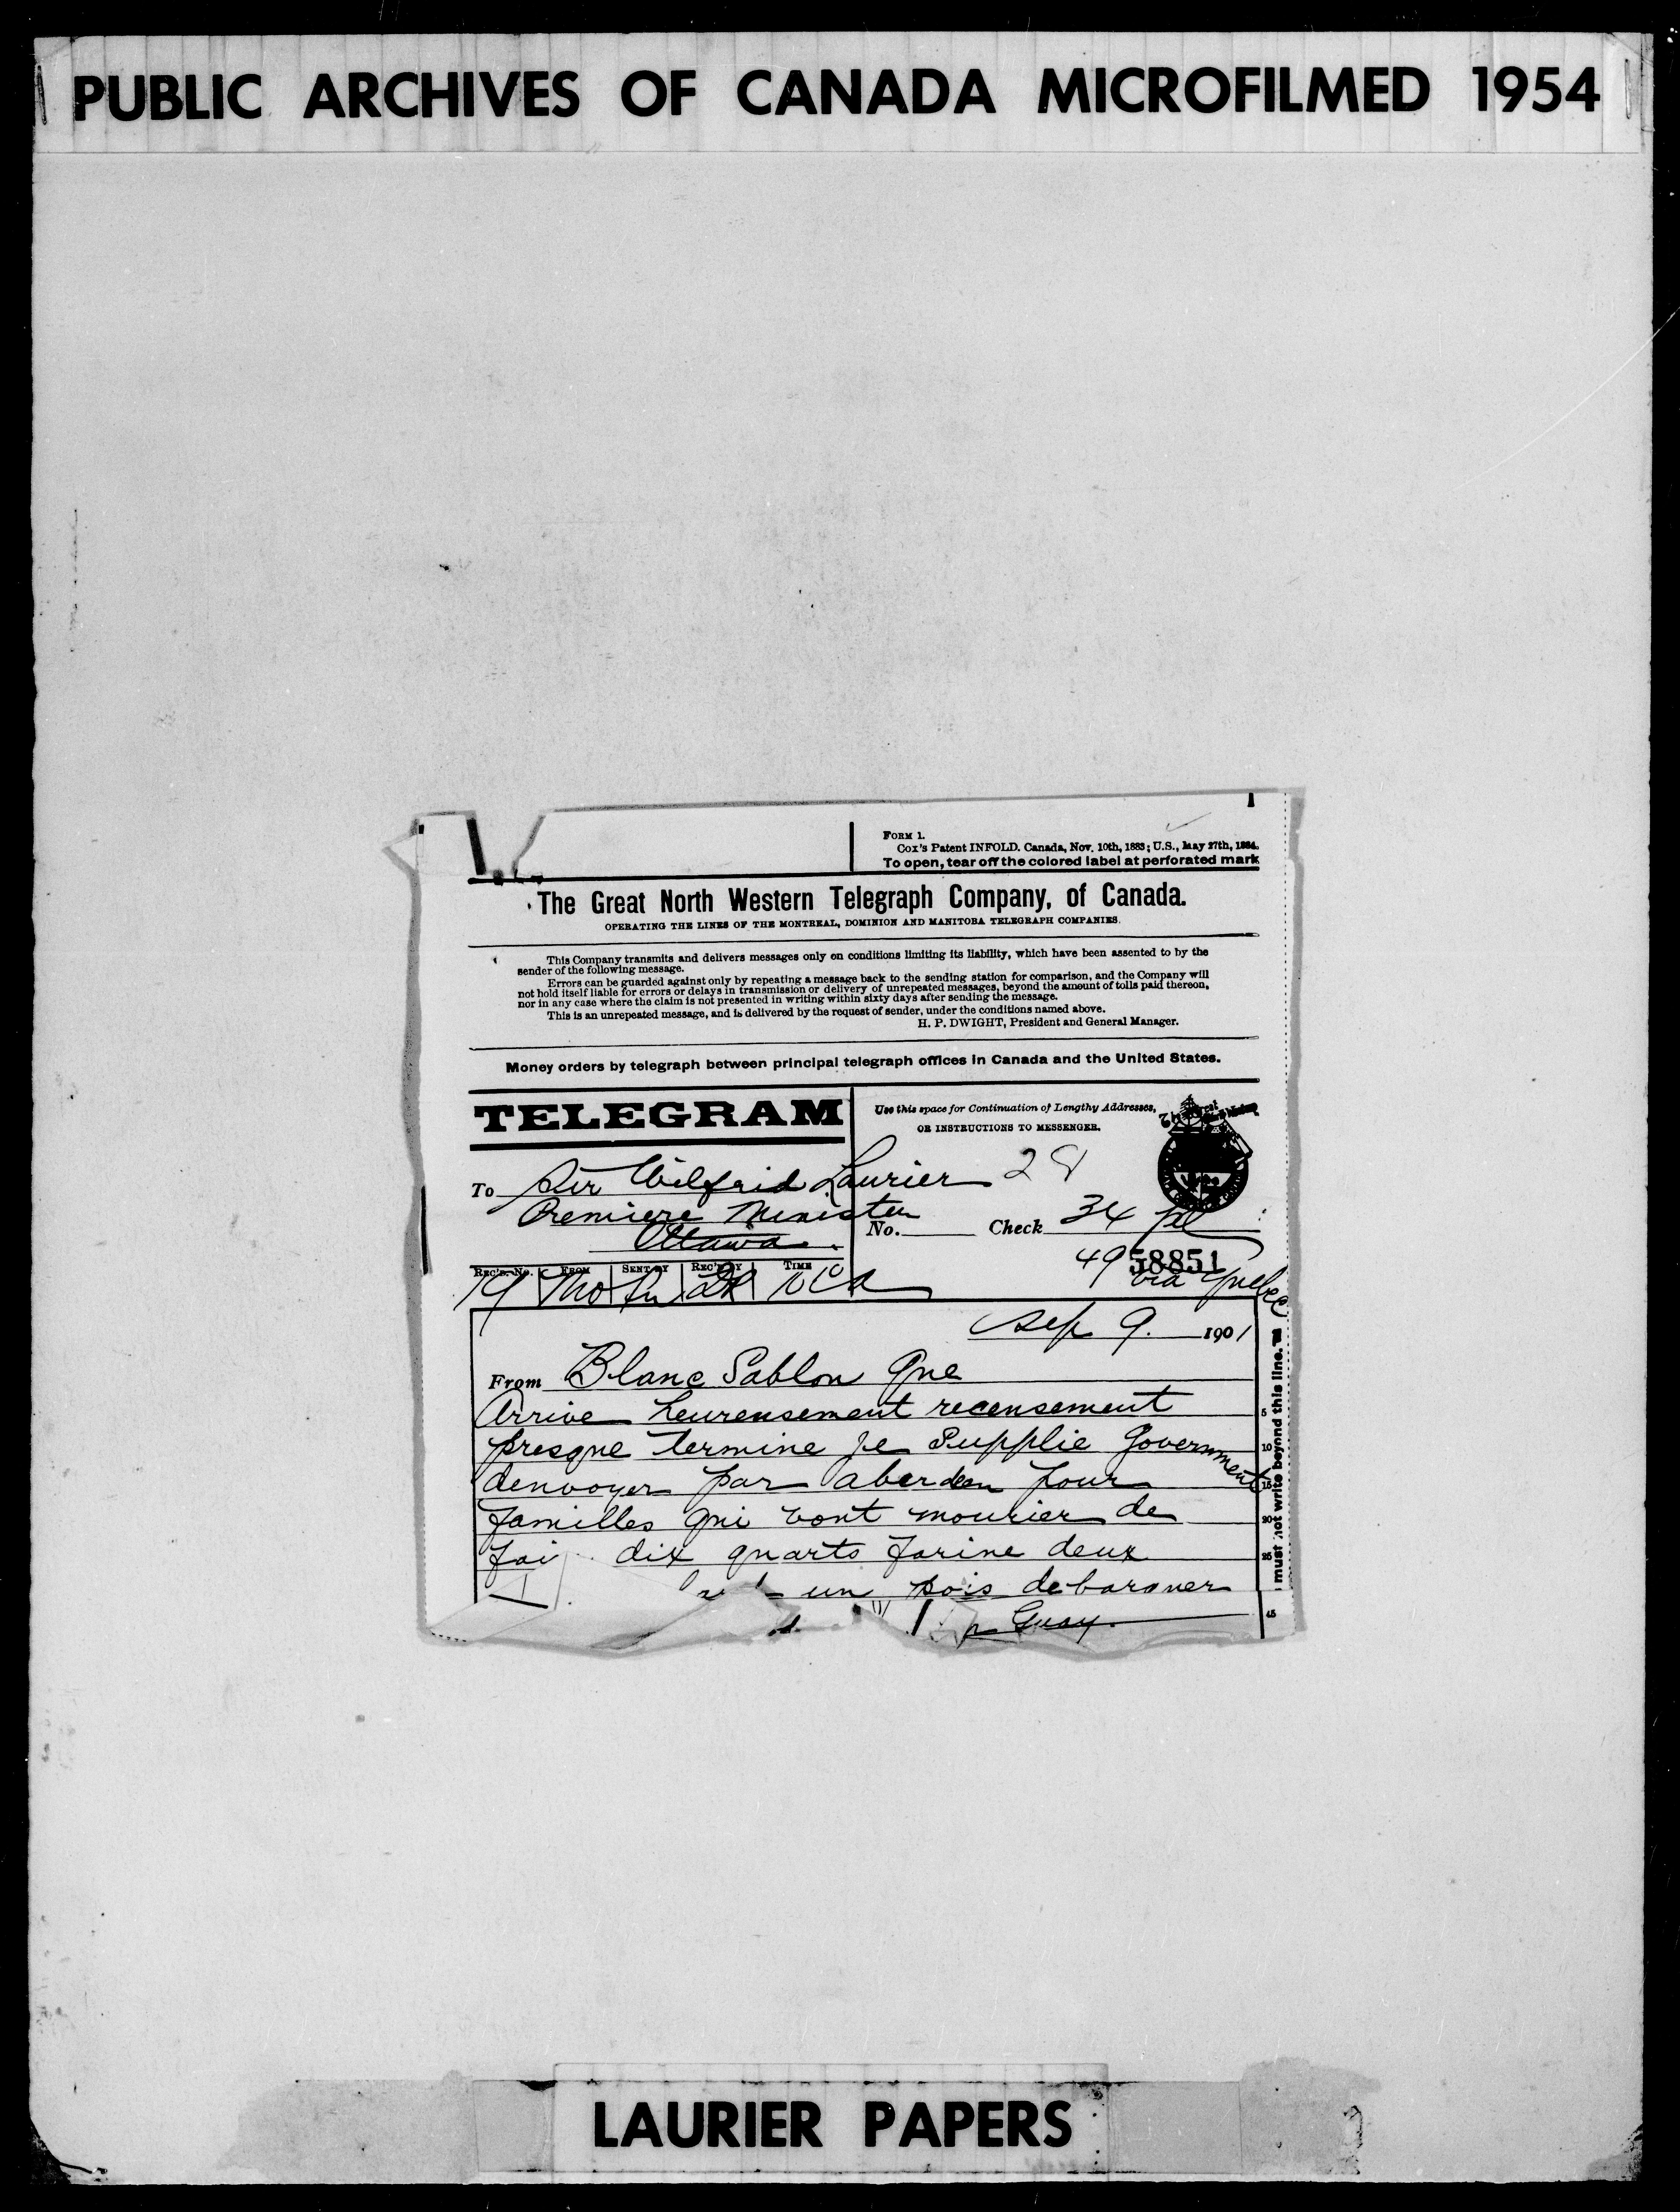 PUBLIC ARCHIVES OF CANADA MICROFILMED 1954
FORM 1.
Cox's Patent INFOLD. Canada, Nov. 10th, 1883; U.S., May 27th, 1884.
To open, tear off the colored label at perforated mark
The Great North Western Telegraph Company, of Canada.
OPERATING THE LINES OF THE MONTREAL, DOMINION AND MANITOBA TELEGRAPH COMPANIES.
This Company transmits and delivers messages only on conditions limiting its liability, which have been assented to by the
sender of the following message.
Errors can be guarded against only by repeating a message back to the sending station for comparison, and the Company will
not hold itself liable for errors or delays in transmission or delivery of unrepeated messages, beyond the amount of tolls paid thereon,
nor in any case where the claim is not presented in writing within sixty days after sending the message.
This is an unrepeated message, and is delivered by the request of sender, under the conditions named above.
H. P. DWIGHT, President and General Manager.
Money orders by telegraph between principal telegraph offices in Canada and the United States.
TELEGRAM
Use this space for Continuation of Lengthy Addresses,
OR INSTRUCTIONS TO MESSENGER.
To Sir Wilfrid Laurier 28
Premiere Minister
Ottawa
No. Check 34
49 58851
via Quebec
REC'D. No. FROM SENT BY REC'D BY TIME
Sep 9. 1901
From Blanc Sablon Que
Arrive heureusement recensement
presque termine je Supplie Government
denvoyer par aberdeen pour
familles qui vont mourier de
fai dix quarts farine deux
un pois debarquer
Guay.
must not write beyond this line.
5
10
15
20
25
45
LAURIER PAPERS